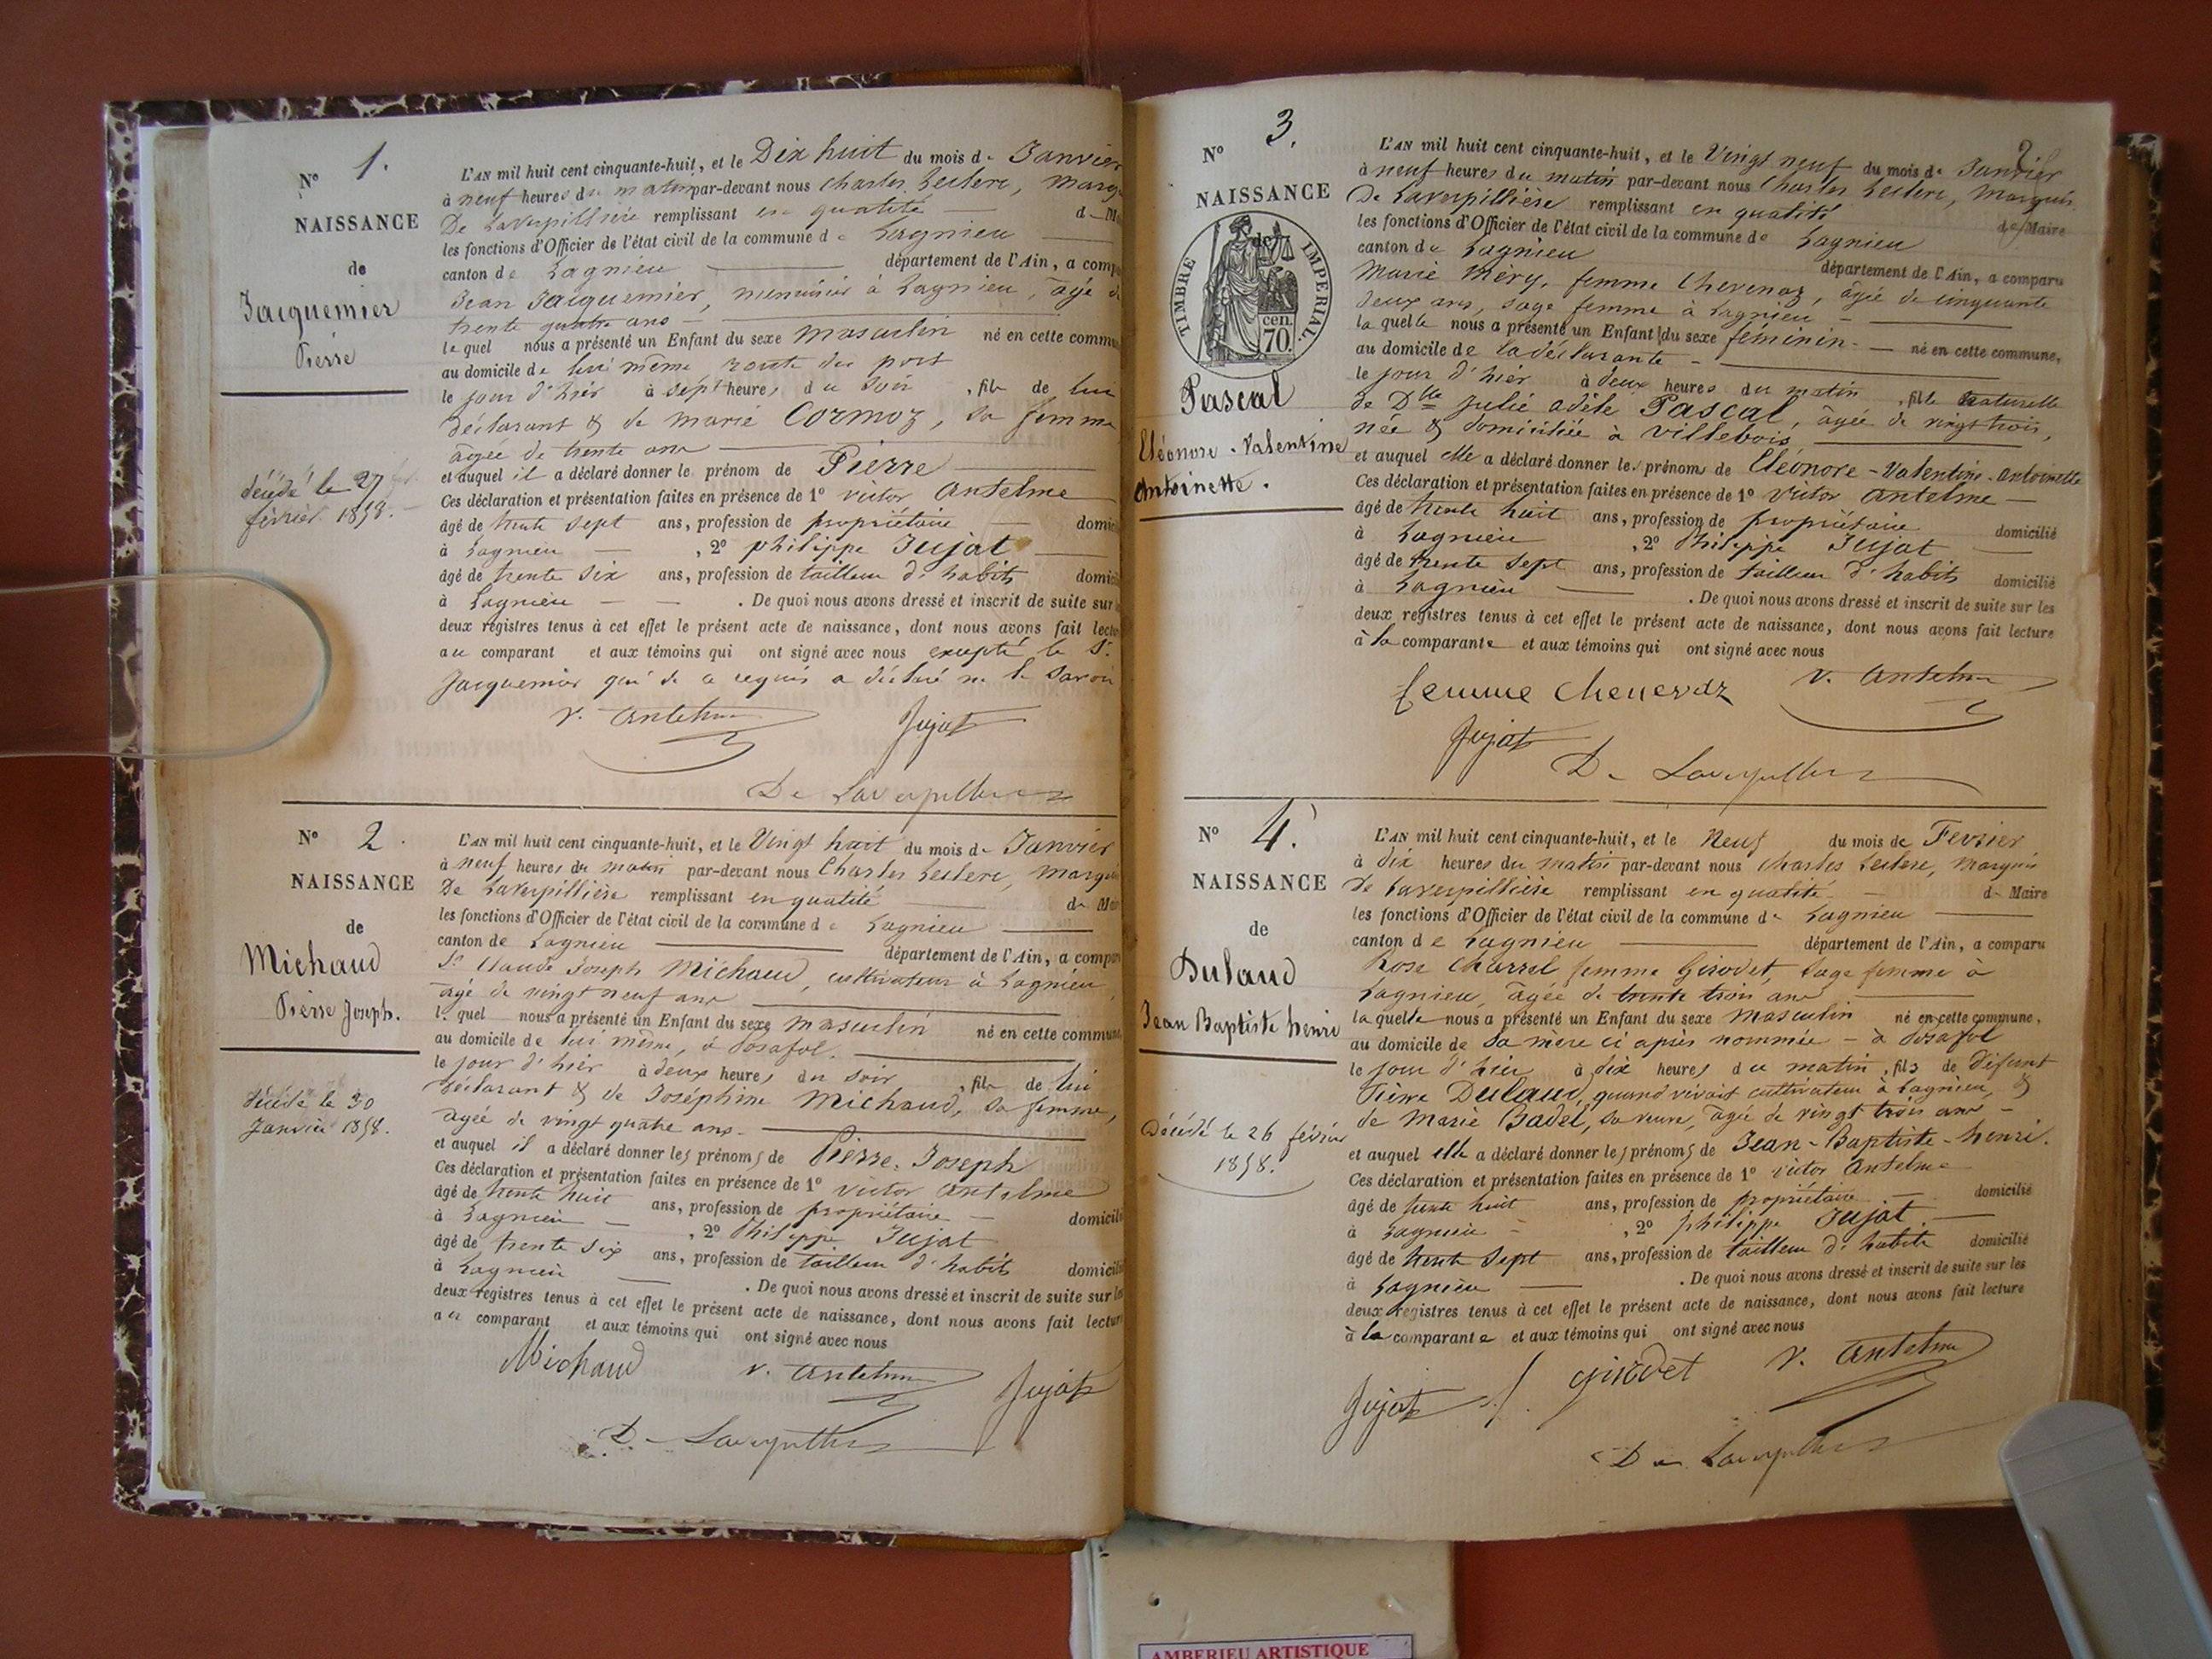 N° 1.
NAISSANCE
de
Jacquemier
Pierre
décédé le 27
février 1858.
L'AN mil huit cent cinquante-huit, et le Dix huit du mois de Janvier
à neuf heures du matin par-devant nous Charles Leclerc, Marq
De Laverpillière remplissant en qualité de M
les fonctions d'Officier de l'état civil de la commune de Lagnieu
canton de Lagnieu département de l'Ain, a comp
Jean Jacquemier, menuisier à Lagnieu, âgé de
trente quatre ans
lequel nous a présenté un Enfant du sexe masculin né en cette commu
au domicile de lui même route du port
le jour d'hier à sept heures du soir, fils de lui
déclarant & de marie Cormoz, sa femme
âgée de trente ans
et auquel il a déclaré donner le prénom de Pierre
Ces déclaration et présentation faites en présence de 1° victor Antelme
âgé de trente sept ans, profession de propriétaire domici
à Lagnieu, 2° philippe Jujat
âgé de trente six ans, profession de tailleur d'habits domici
à Lagnieu. De quoi nous avons dressé et inscrit de suite sur
deux registres tenus à cet effet le présent acte de naissance, dont nous avons fait lectu
au comparant et aux témoins qui ont signé avec nous excepté le Sr
Jacquemier qui de ce requis a déclaré ne le savoir
V. Antelme Jujat
De Laverpillière
N° 2.
NAISSANCE
de
Michaud
Pierre Joseph.
décédé le 30
Janvier 1858.
L'AN mil huit cent cinquante-huit, et le Vingt huit du mois de Janvier
à neuf heures du matin par-devant nous Charles Leclerc, Marqui
De Laverpillière remplissant en qualité de Mai
les fonctions d'Officier de l'état civil de la commune de Lagnieu
canton de Lagnieu département de l'Ain, a compar
Sr Claude Joseph Michaud, cultivateur à Lagnieu,
âgé de vingt neuf ans
lequel nous a présenté un Enfant du sexe masculin né en cette commune
au domicile de lui même, à Posafol.
le jour d'hier à deux heures du soir, fils de lui
déclarant & de Joséphine Michaud, sa femme,
agée de vingt quatre ans.
et auquel il a déclaré donner les prénoms de Pierre Joseph
Ces déclaration et présentation faites en présence de 1° victor Antelme
âgé de trente huit ans, profession de propriétaire domicili
à Lagnieu, 2° Philippe Jujat
âgé de trente six ans, profession de tailleur d'habits domicili
à Lagnieu. De quoi nous avons dressé et inscrit de suite sur les
deux registres tenus à cet effet le présent acte de naissance, dont nous avons fait lectur
au comparant et aux témoins qui ont signé avec nous
Michaud V. Antelme Jujat
De Laverpillière
2
N° 3.
NAISSANCE
de
TIMBRE IMPERIAL.
cen.
70.
Pascal
Eléonore-Valentine
Antoinette.
L'AN mil huit cent cinquante-huit, et le Vingt neuf du mois de Janvier
à neuf heures du matin par-devant nous Charles Leclerc, Marquis
De Laverpillière remplissant en qualité de Maire
les fonctions d'Officier de l'état civil de la commune de Lagnieu
canton de Lagnieu département de l'Ain, a comparu
Marie Méry, femme Chevenoz, âgée de cinquante
deux ans, sage femme à Lagnieu
laquelle nous a présenté un Enfant du sexe féminin né en cette commune,
au domicile de la déclarante
le jour d'hier à deux heures du matin, fille naturelle
de Dlle Julie adèle Pascal, âgée de vingt trois,
née & domiciliée à Villebois
et auquel elle a déclaré donner les prénoms de Eléonore-Valentine-Antoinette
Ces déclaration et présentation faites en présence de 1° Victor Antelme
âgé de trente huit ans, profession de propriétaire domicilié
à Lagnieu, 2° Philippe Jujat
âgé de trente sept ans, profession de tailleur d'habits domicilié
à Lagnieu. De quoi nous avons dressé et inscrit de suite sur les
deux registres tenus à cet effet le présent acte de naissance, dont nous avons fait lecture
à la comparante et aux témoins qui ont signé avec nous
femme Chenevaz V. Antelme
Jujat De Laverpillière
N° 4.
NAISSANCE
de
Dulaud
Jean Baptiste henri
Décédé le 26 février
1858.
L'AN mil huit cent cinquante-huit, et le Neuf du mois de Fevrier
à dix heures du matin par-devant nous Charles Leclerc, Marquis
de Laverpillière remplissant en qualité de Maire
les fonctions d'Officier de l'état civil de la commune de Lagnieu
canton de Lagnieu département de l'Ain, a comparu
Rose Charrel femme Girodet, sage femme à
Lagnieu, âgée de trente trois ans
laquelle nous a présenté un Enfant du sexe Masculin né en cette commune.
au domicile de sa mère ci après nommée - à Posafol
le jour d'hier à dix heures du matin, fils de défunt
Pierre Dulaud, quand vivait cultivateur à Lagnieu, &
de Marie Badel, sa veuve, âgée de vingt trois ans -
et auquel elle a déclaré donner les prénoms de Jean-Baptiste-henri.
Ces déclaration et présentation faites en présence de 1° victor Antelme
âgé de trente huit ans, profession de propriétaire domicilié
à Lagnieu, 2° philippe Jujat
âgé de trente sept ans, profession de tailleur d'habits domicilié
à Lagnieu. De quoi nous avons dressé et inscrit de suite sur les
deux registres tenus à cet effet le présent acte de naissance, dont nous avons fait lecture
à la comparante et aux témoins qui ont signé avec nous
Jujat f. girodet V. Antelme
De Laverpillière
AMBERIEU ARTISTIQUE